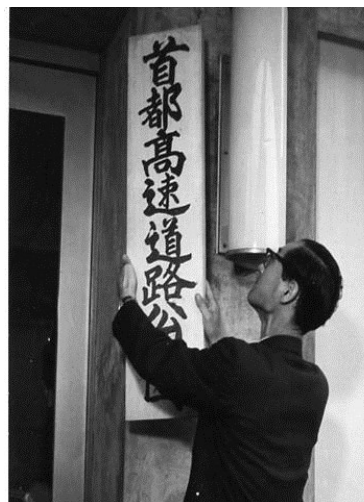 首都高速道路公